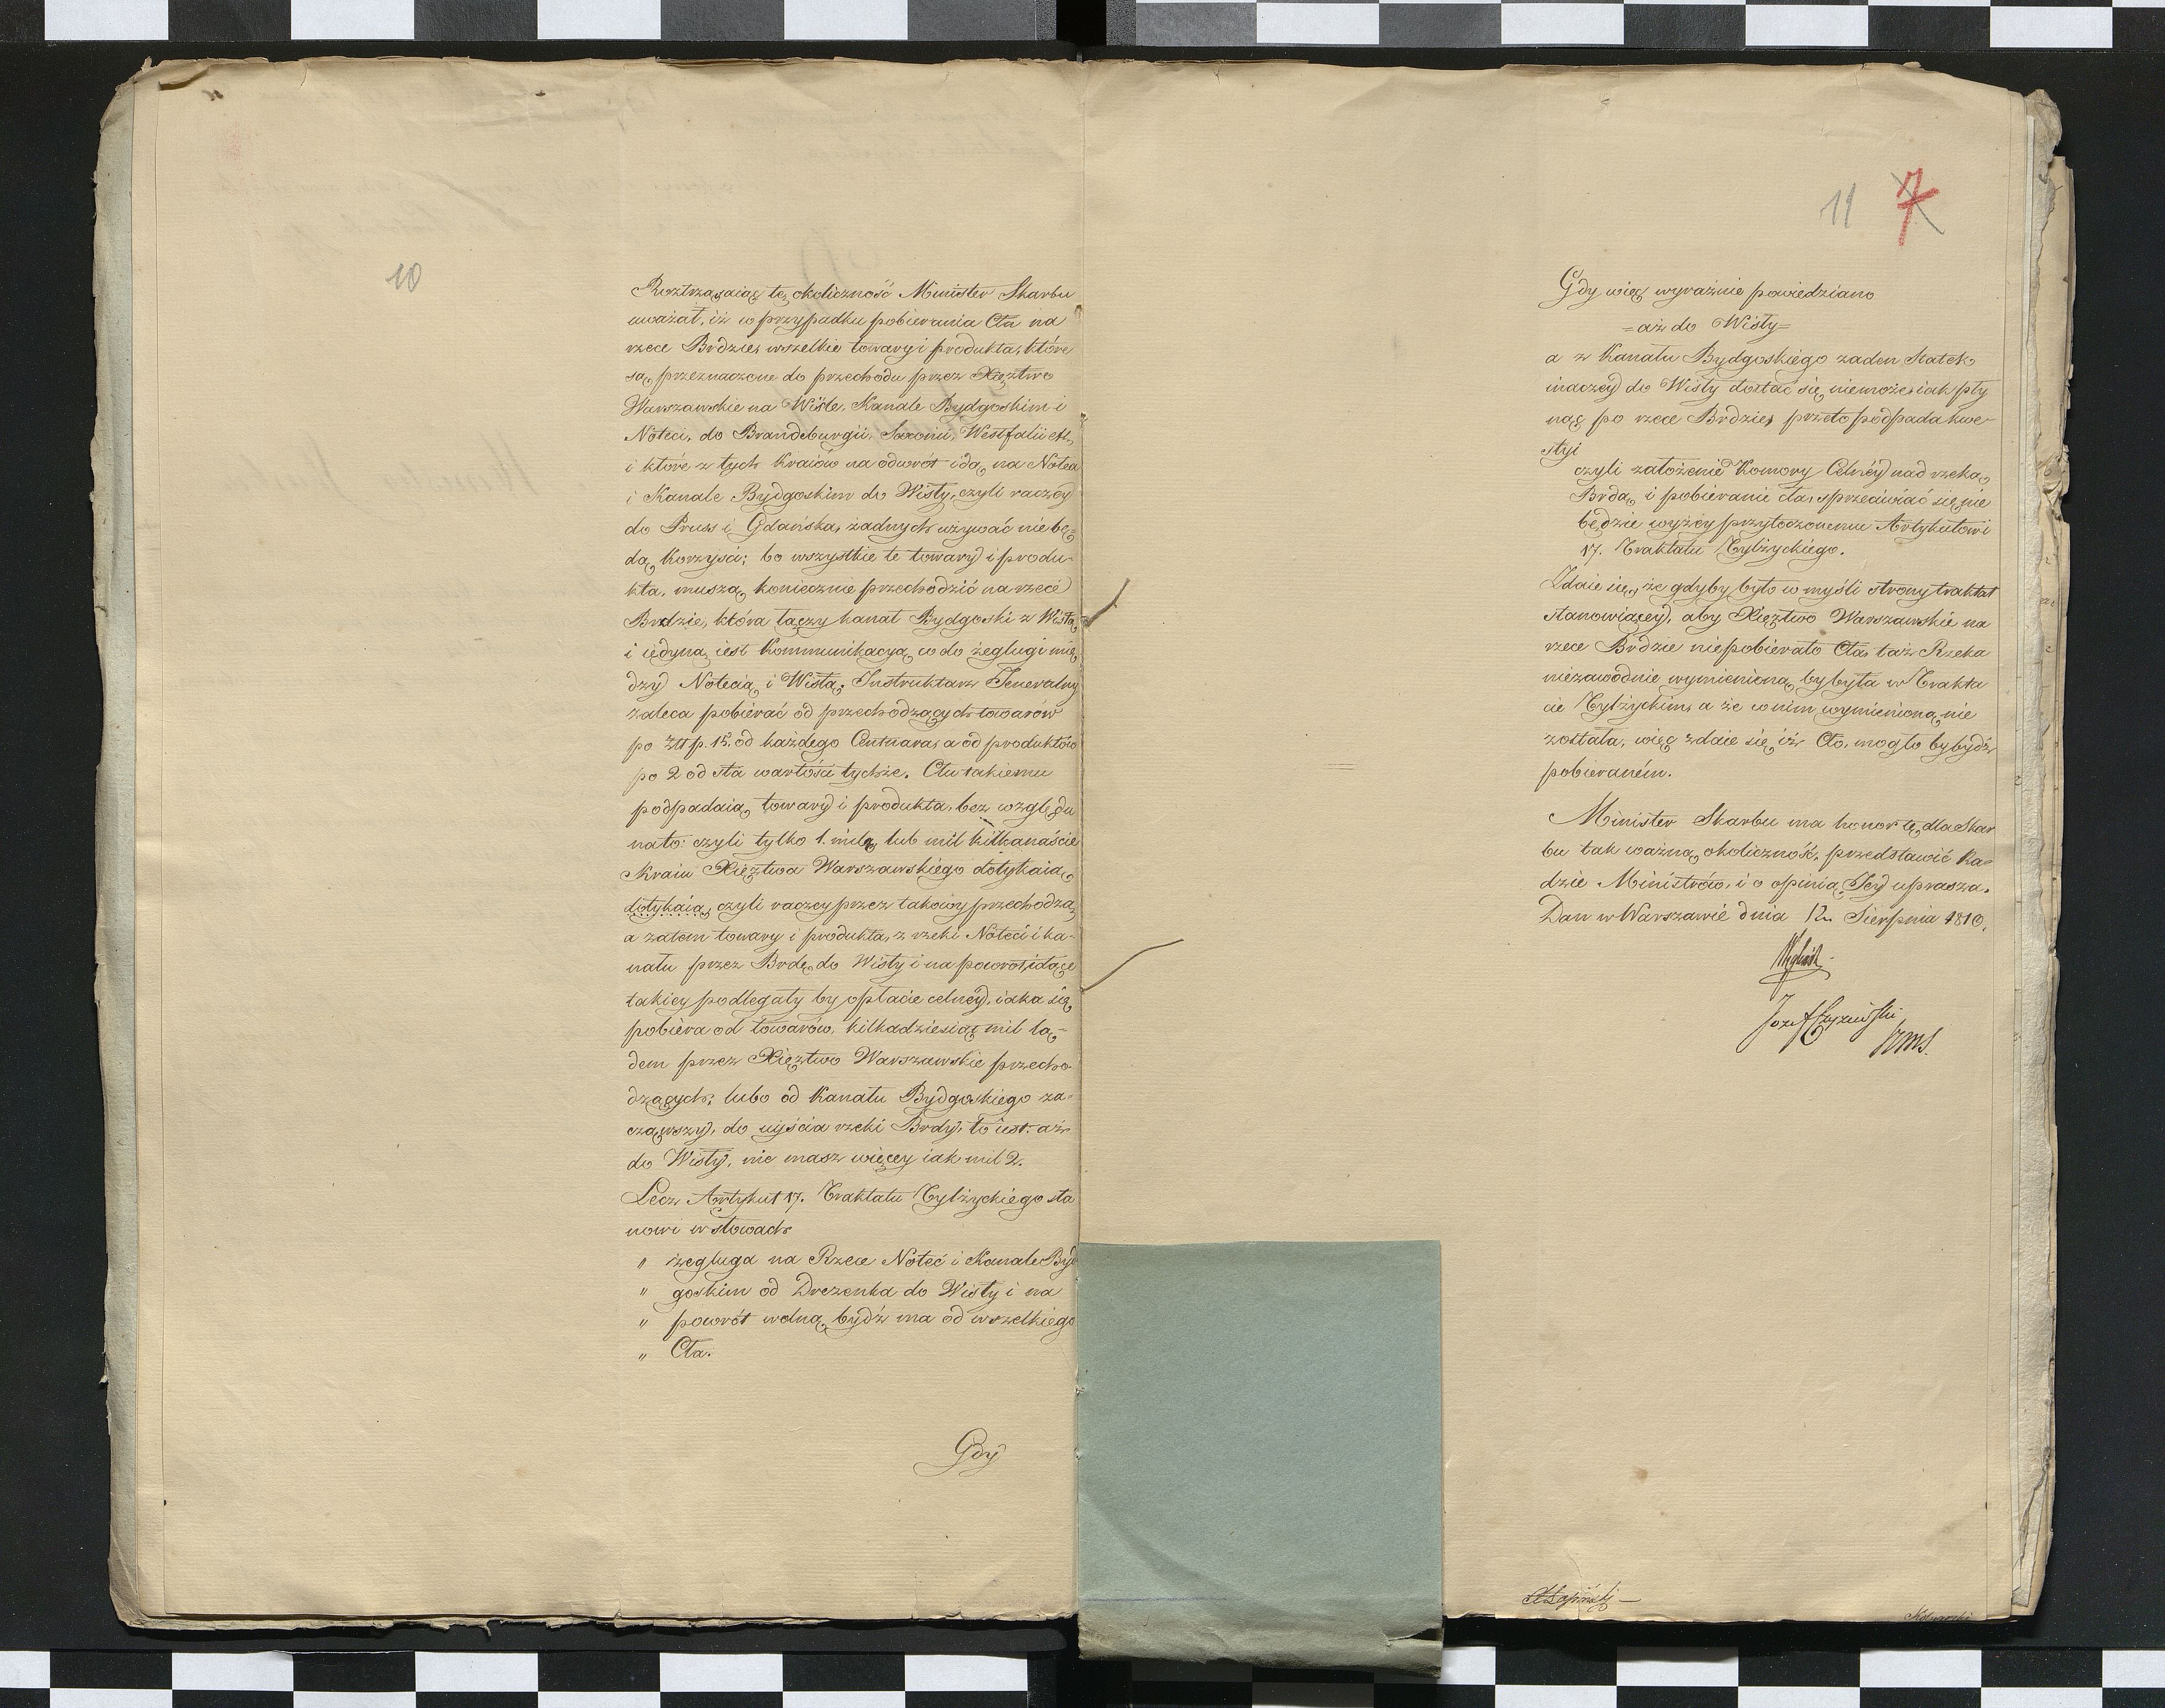 10
Roztrząsaiąc tę okoliczność Minister Skarbu
uważał, iż w przypadku pobierania Cła na
rzece Brdzie, wszelkie towary i produkta, które
są przeznaczone do przechodu przez Xięztwo
Warszawskie na Wiśle, Kanale Bydgoskim i
Noteci, do Brandeburgii, Saxonii, Westfalii etc,
i które z tych Kraiów na odwrót idą, na Noteci
i Kanale Bydgoskim do Wisły, czyli raczéy
do Pruss i Gdańska, żadnych używać nie bę-
dą korzyści; bo wszystkie te towary i produ-
kta, muszą koniecznie przechodzić na rzecé
Brdzie, która łączy kanał Bydgoski z Wisłą,
i iedyną iest Kommunikacyą co do żeglugi mię
dzy Notecią i Wisłą; Instruktarz Jeneralny
zaleca pobiérać od przechodzących towarów
po złł p. 15. od każdego Centnara, a od produktów
po 2 od sta wartości tychże. Cłu takiemu
podpadaią towary i produkta, bez względu
na to: czyli tylko 1. milę lub mil kilkanaście
Kraiu Xięztwa Warszawskiégo dotykaią,
dotykaią, czyli raczey przez takowy przechodzą,
a zatem towary i produkta, z rzeki Noteci i ka-
nału przez Brdę do Wisły i na powrót idące
takiey podlegały by opłacie celnéy, iaka się
pobiéra od towarów, kilkadziesiąt mil lą-
dem przez Xięztwo Warszawskie przecho-
dzących; lubo od Kanału Bydgoskiego za-
cząwszy, do uyścia rzeki Brdy, to iest: aż
do Wisły, nie masz więcey iak mil 2.
Lecz Artykuł 17. Traktatu Tylżyckiego sta
nowi w słowach
" żegluga na Rzece Noteć i Kanale Byd
" goskim od Drezenka do Wisły i na
" powrót wolną bydź ma od wszelkiégo
" Cła.
Gdy
11 7
Gdy więc wyraźnie powiedziano
= aż do Wisły =
a z Kanału Bydgoskiégo żaden Statek
inaczéy do Wisły dostać się niemoże, iak pły
nąc po rzece Brdzie, przeto podpada kwe-
styi
czyli założenie Komory Celnéy nad rzeką
Brdą i pobieranie cła, sprzeciwiać się nie
będzie wyżéy przytoczonemu Artykułowi
17. Traktatu Tylżyckiego.
Zdaie się, że gdyby było w myśli strony traktat
stanowiącéy, aby Xięztwo Warszawskie na
rzece Brdzie niepobierało Cła, taż Rzeka
niezawodnie wymienioną by była w Trakta
cie Tylżyckim, a że w nim wymienioną nie
została, więc zdaie się, iż Cło, mogło by bydź
pobieraném.
Minister Skarbu ma honor tę dla Skar
bu tak ważną okoliczność, przedstawić Ra-
dzie Ministrów, i o opinią Jey uprasza.
Dan w Warszawié dnia 12. Sierpnia 1810.
Józef